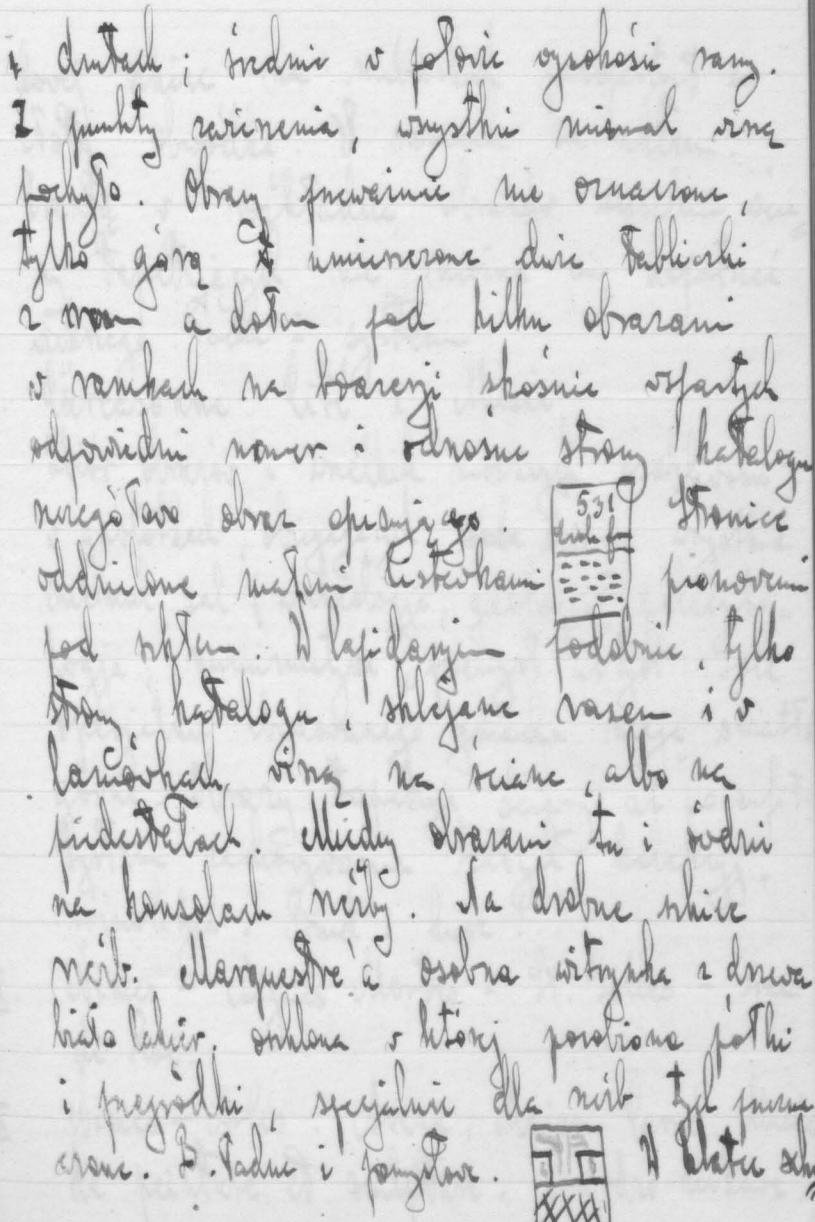 drutach; średnio w połowie wysokości ramy.
Z punkty zawieszenia, wszystkie niemal wiszą
pochyło. Obrazy przeważnie nie oznaczone,
tylko górą umieszczone duże tabliczki
z a dołem pod kilku obrazami
w ramkach na boazerji skośnie wspartych
odpowiedni numer i odnośne strony katalogu
szczegółowo obraz opisującego. 531 Stronice
oddzielone małemi listewkami pionowemi
pod szkłem. W lapidarjum podobnie, tylko
strony katalogu, sklejane razem i w
lamówkach wiszą na ścianie, albo na
piedestałach. Między obrazami tu i ówdzie
na konsolach rzeźby. Na drobne szkice
rzeźb. Marquestre'a osobna witrynka z drzewa
biało lakier. oszklona w której porobiono półki
i przegródki, specjalnie dla rzeźb tych
czone. B. ładne i pomysłowe. W klatce